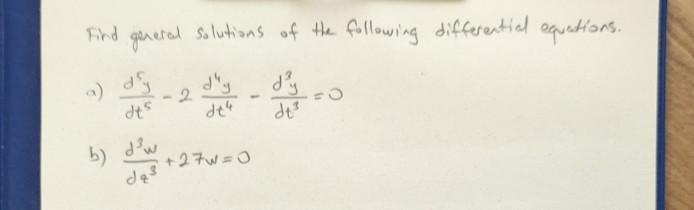 Find general solutions of the following differential equations.
a) d⁵y/dt⁵ - 2 d⁴y/dt⁴ - d³y/dt³ = 0
b) d³w/dz³ + 27w = 0